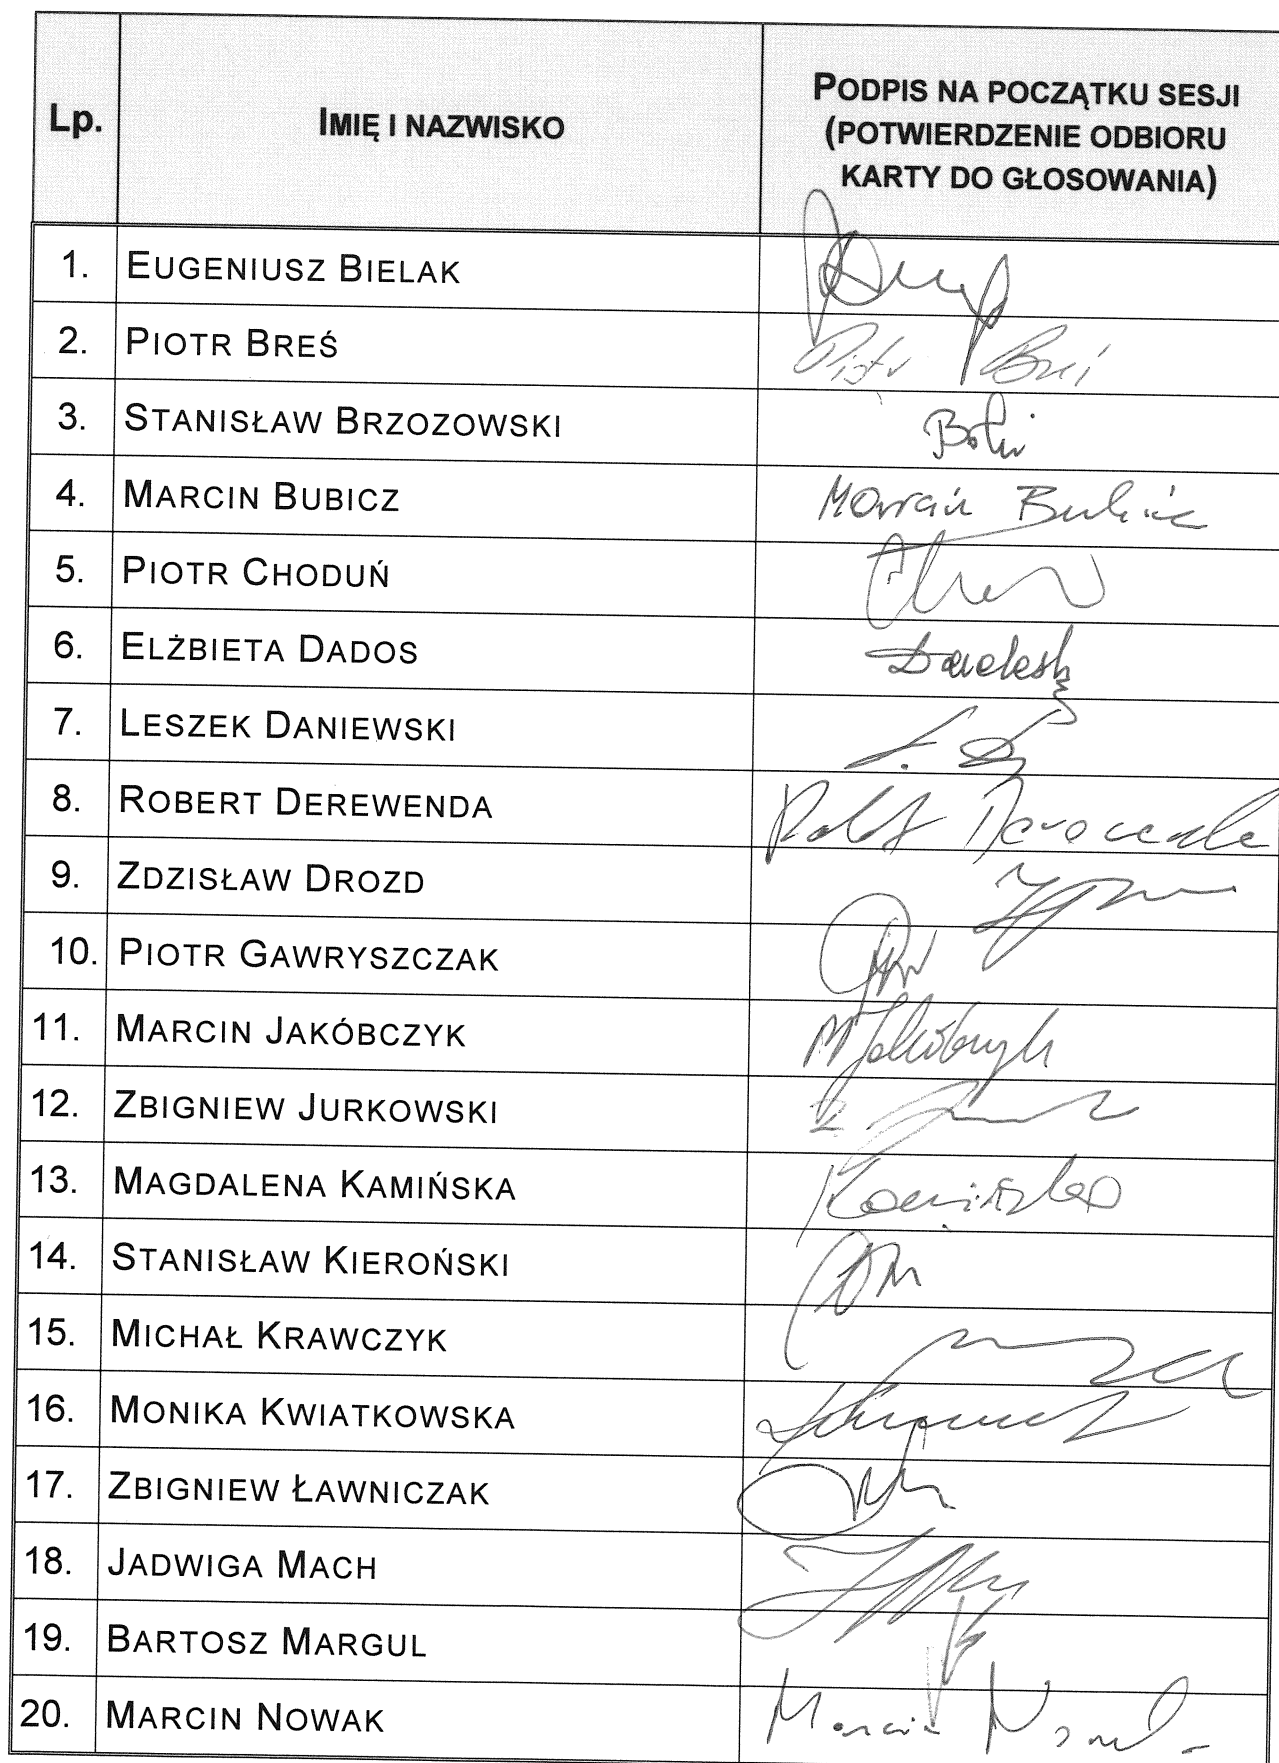 Lp. IMIĘ I NAZWISKO PODPIS NA POCZĄTKU SESJI
(POTWIERDZENIE ODBIORU
KARTY DO GŁOSOWANIA)
1. EUGENIUSZ BIELAK
2. PIOTR BREŚ Piotr Breś
3. STANISŁAW BRZOZOWSKI
4. MARCIN BUBICZ Marcin Bubicz
5. PIOTR CHODUŃ
6. ELŻBIETA DADOS
7. LESZEK DANIEWSKI
8. ROBERT DEREWENDA Robert Derewenda
9. ZDZISŁAW DROZD
10. PIOTR GAWRYSZCZAK
11. MARCIN JAKÓBCZYK M Jakóbczyk
12. ZBIGNIEW JURKOWSKI
13. MAGDALENA KAMIŃSKA Kamińska
14. STANISŁAW KIEROŃSKI
15. MICHAŁ KRAWCZYK
16. MONIKA KWIATKOWSKA
17. ZBIGNIEW ŁAWNICZAK
18. JADWIGA MACH
19. BARTOSZ MARGUL
20. MARCIN NOWAK Marcin Nowak